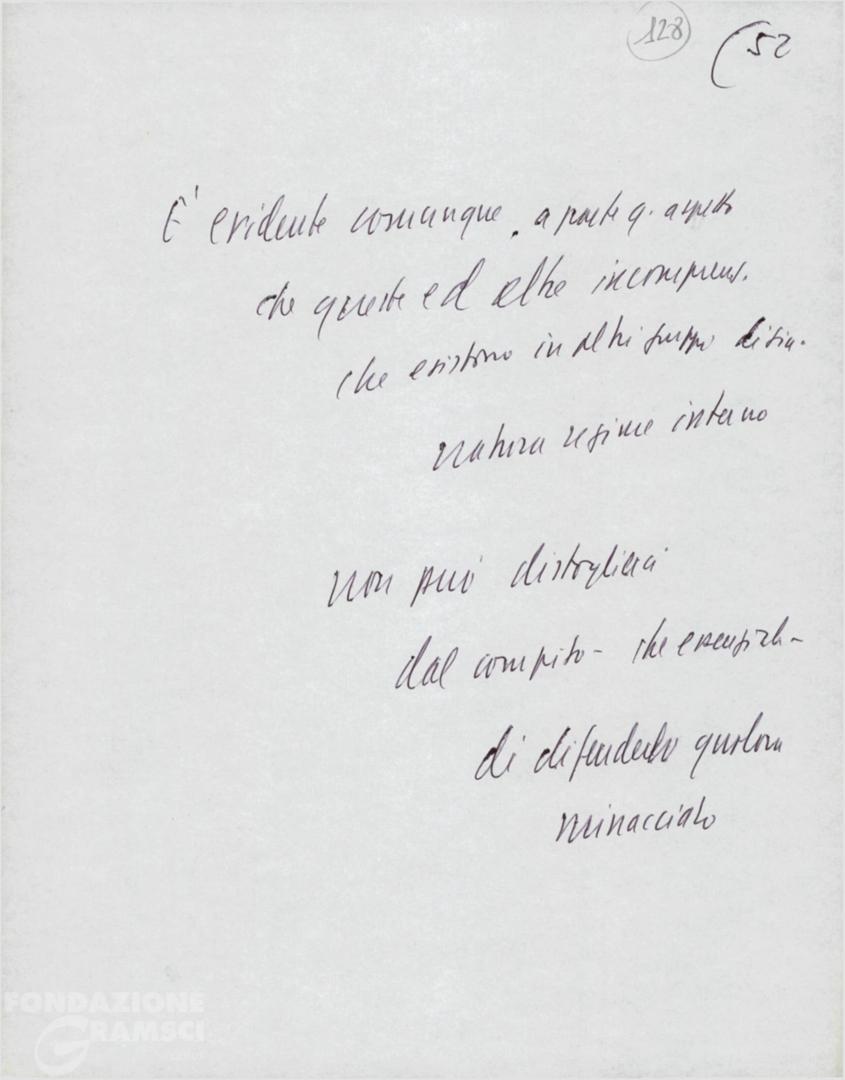 128
(52
E' evidente comunque, a parte q. aspetto
che queste ed altre incomprens.
che esistono in altri gruppi di sin.
natura regime interno
non può distoglierci
dal compito - che essenziale -
di difenderlo qualora
minacciato
FONDAZIONE
GRAMSCI